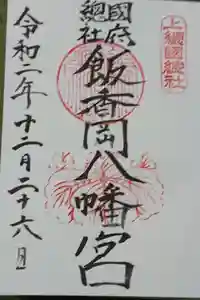 上総國総社
國府
總社
飯香岡八幡宮
令和二年十二月二十六日